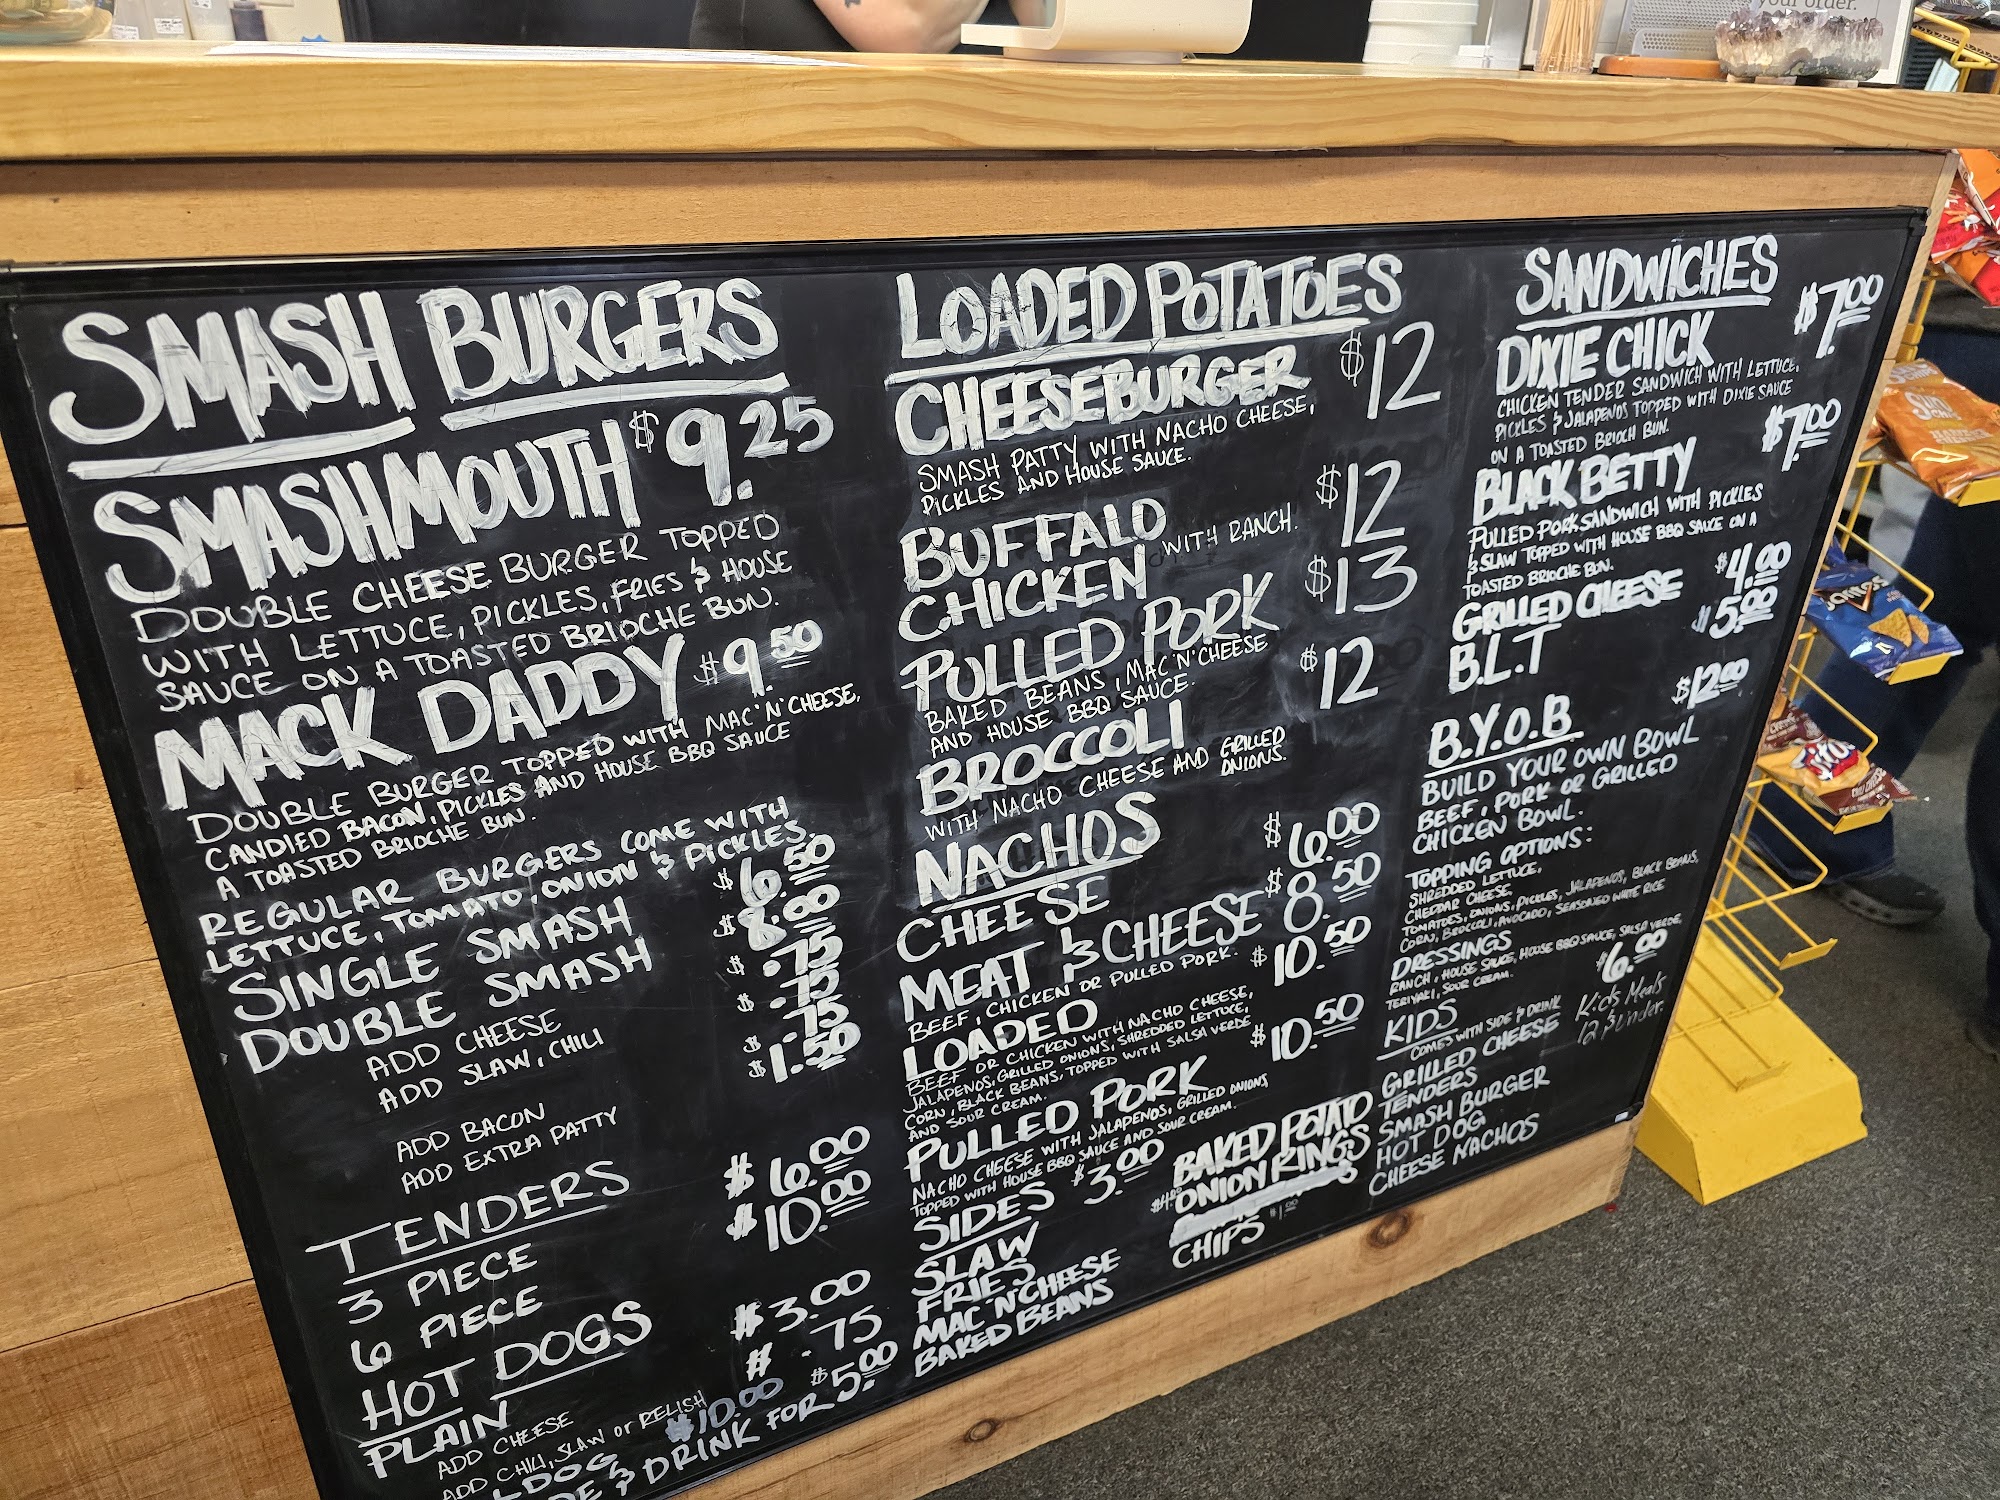 your order.
SMASH BURGERS
SMASHMOUTH $9.25
DOUBLE CHEESE BURGER TOPPED
WITH LETTUCE, PICKLES, FRIES & HOUSE
SAUCE ON A TOASTED BRIOCHE BUN.
MACK DADDY $9.50
DOUBLE BURGER TOPPED WITH MAC 'N' CHEESE,
CANDIED BACON, PICKLES AND HOUSE BBQ SAUCE
A TOASTED BRIOCHE BUN.
REGULAR BURGERS COME WITH
LETTUCE, TOMATO, ONION & PICKLES.
SINGLE SMASH $6.50
DOUBLE SMASH $8.00
ADD CHEESE $.75
ADD SLAW, CHILI $.75
ADD BACON $.75
ADD EXTRA PATTY $1.50
TENDERS
3 PIECE $6.00
6 PIECE $10.00
HOT DOGS
PLAIN $3.00
ADD CHEESE # .75
ADD CHILI, SLAW or RELISH
LDOG $10.00
DE & DRINK FOR $5.00
LOADED POTATOES
CHEESEBURGER $12
SMASH PATTY WITH NACHO CHEESE,
PICKLES AND HOUSE SAUCE.
BUFFALO $12
CHICKEN WITH RANCH.
PULLED PORK $13
BAKED BEANS, MAC 'N' CHEESE
AND HOUSE BBQ SAUCE.
BROCCOLI $12
WITH NACHO CHEESE AND GRILLED
ONIONS.
NACHOS
CHEESE $6.00
MEAT & CHEESE $8.50
BEEF, CHICKEN OR PULLED PORK.
LOADED $10.50
BEEF OR CHICKEN WITH NACHO CHEESE,
JALAPENOS, GRILLED ONIONS, SHREDDED LETTUCE,
CORN, BLACK BEANS, TOPPED WITH SALSA VERDE
AND SOUR CREAM.
PULLED PORK $10.50
NACHO CHEESE WITH JALAPENOS, GRILLED ONIONS
TOPPED WITH HOUSE BBQ SAUCE AND SOUR CREAM.
SIDES $3.00
SLAW
FRIES
MAC 'N' CHEESE
BAKED BEANS
BAKED POTATO
ONION RINGS
CHIPS
SANDWICHES
DIXIE CHICK $7.00
CHICKEN TENDER SANDWICH WITH LETTUCE,
PICKLES & JALAPENOS TOPPED WITH DIXIE SAUCE
ON A TOASTED BRIOCH BUN.
BLACK BETTY $7.00
PULLED PORK SANDWICH WITH PICKLES
& SLAW TOPPED WITH HOUSE BBQ SAUCE ON A
TOASTED BRIOCHE BUN.
GRILLED CHEESE $4.00
B.L.T $5.00
B.Y.O.B $12.00
BUILD YOUR OWN BOWL
BEEF, PORK OR GRILLED
CHICKEN BOWL.
TOPPING OPTIONS:
SHREDDED LETTUCE,
CHEDDAR CHEESE
TOMATOES, ONIONS, PICKLES, JALAPENOS, BLACK BEANS,
CORN, BROCCOLI, AVOCADO, SEASONED WHITE RICE
DRESSINGS
RANCH, HOUSE SAUCE, HOUSE BBQ SAUCE, SALSA VERDE,
TERIYAKI, SOUR CREAM.
KIDS $6.00
COMES WITH SIDE & DRINK
Kids Meals
12 & Under.
GRILLED CHEESE
TENDERS
SMASH BURGER
HOT DOG
CHEESE NACHOS
SUN
Doritos
Fritos